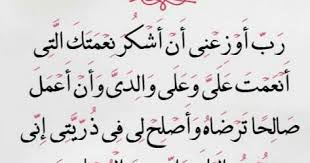 رَبِّ أَوْزِعْنِى أَنْ أَشْكُرَ نِعْمَتَكَ الَّتِى
أَنْعَمْتَ عَلَىَّ وَعَلَى وَالِدَىَّ وَأَنْ أَعْمَلَ
صَالِحًا تَرْضَاهُ وَأَصْلِحْ لِى فِى ذُرِّيَّتِى إِنِّى